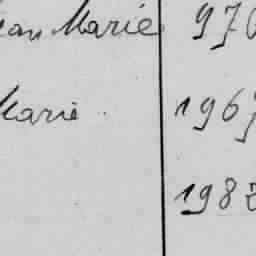 Jean Marie 970
Marie 1967
1982